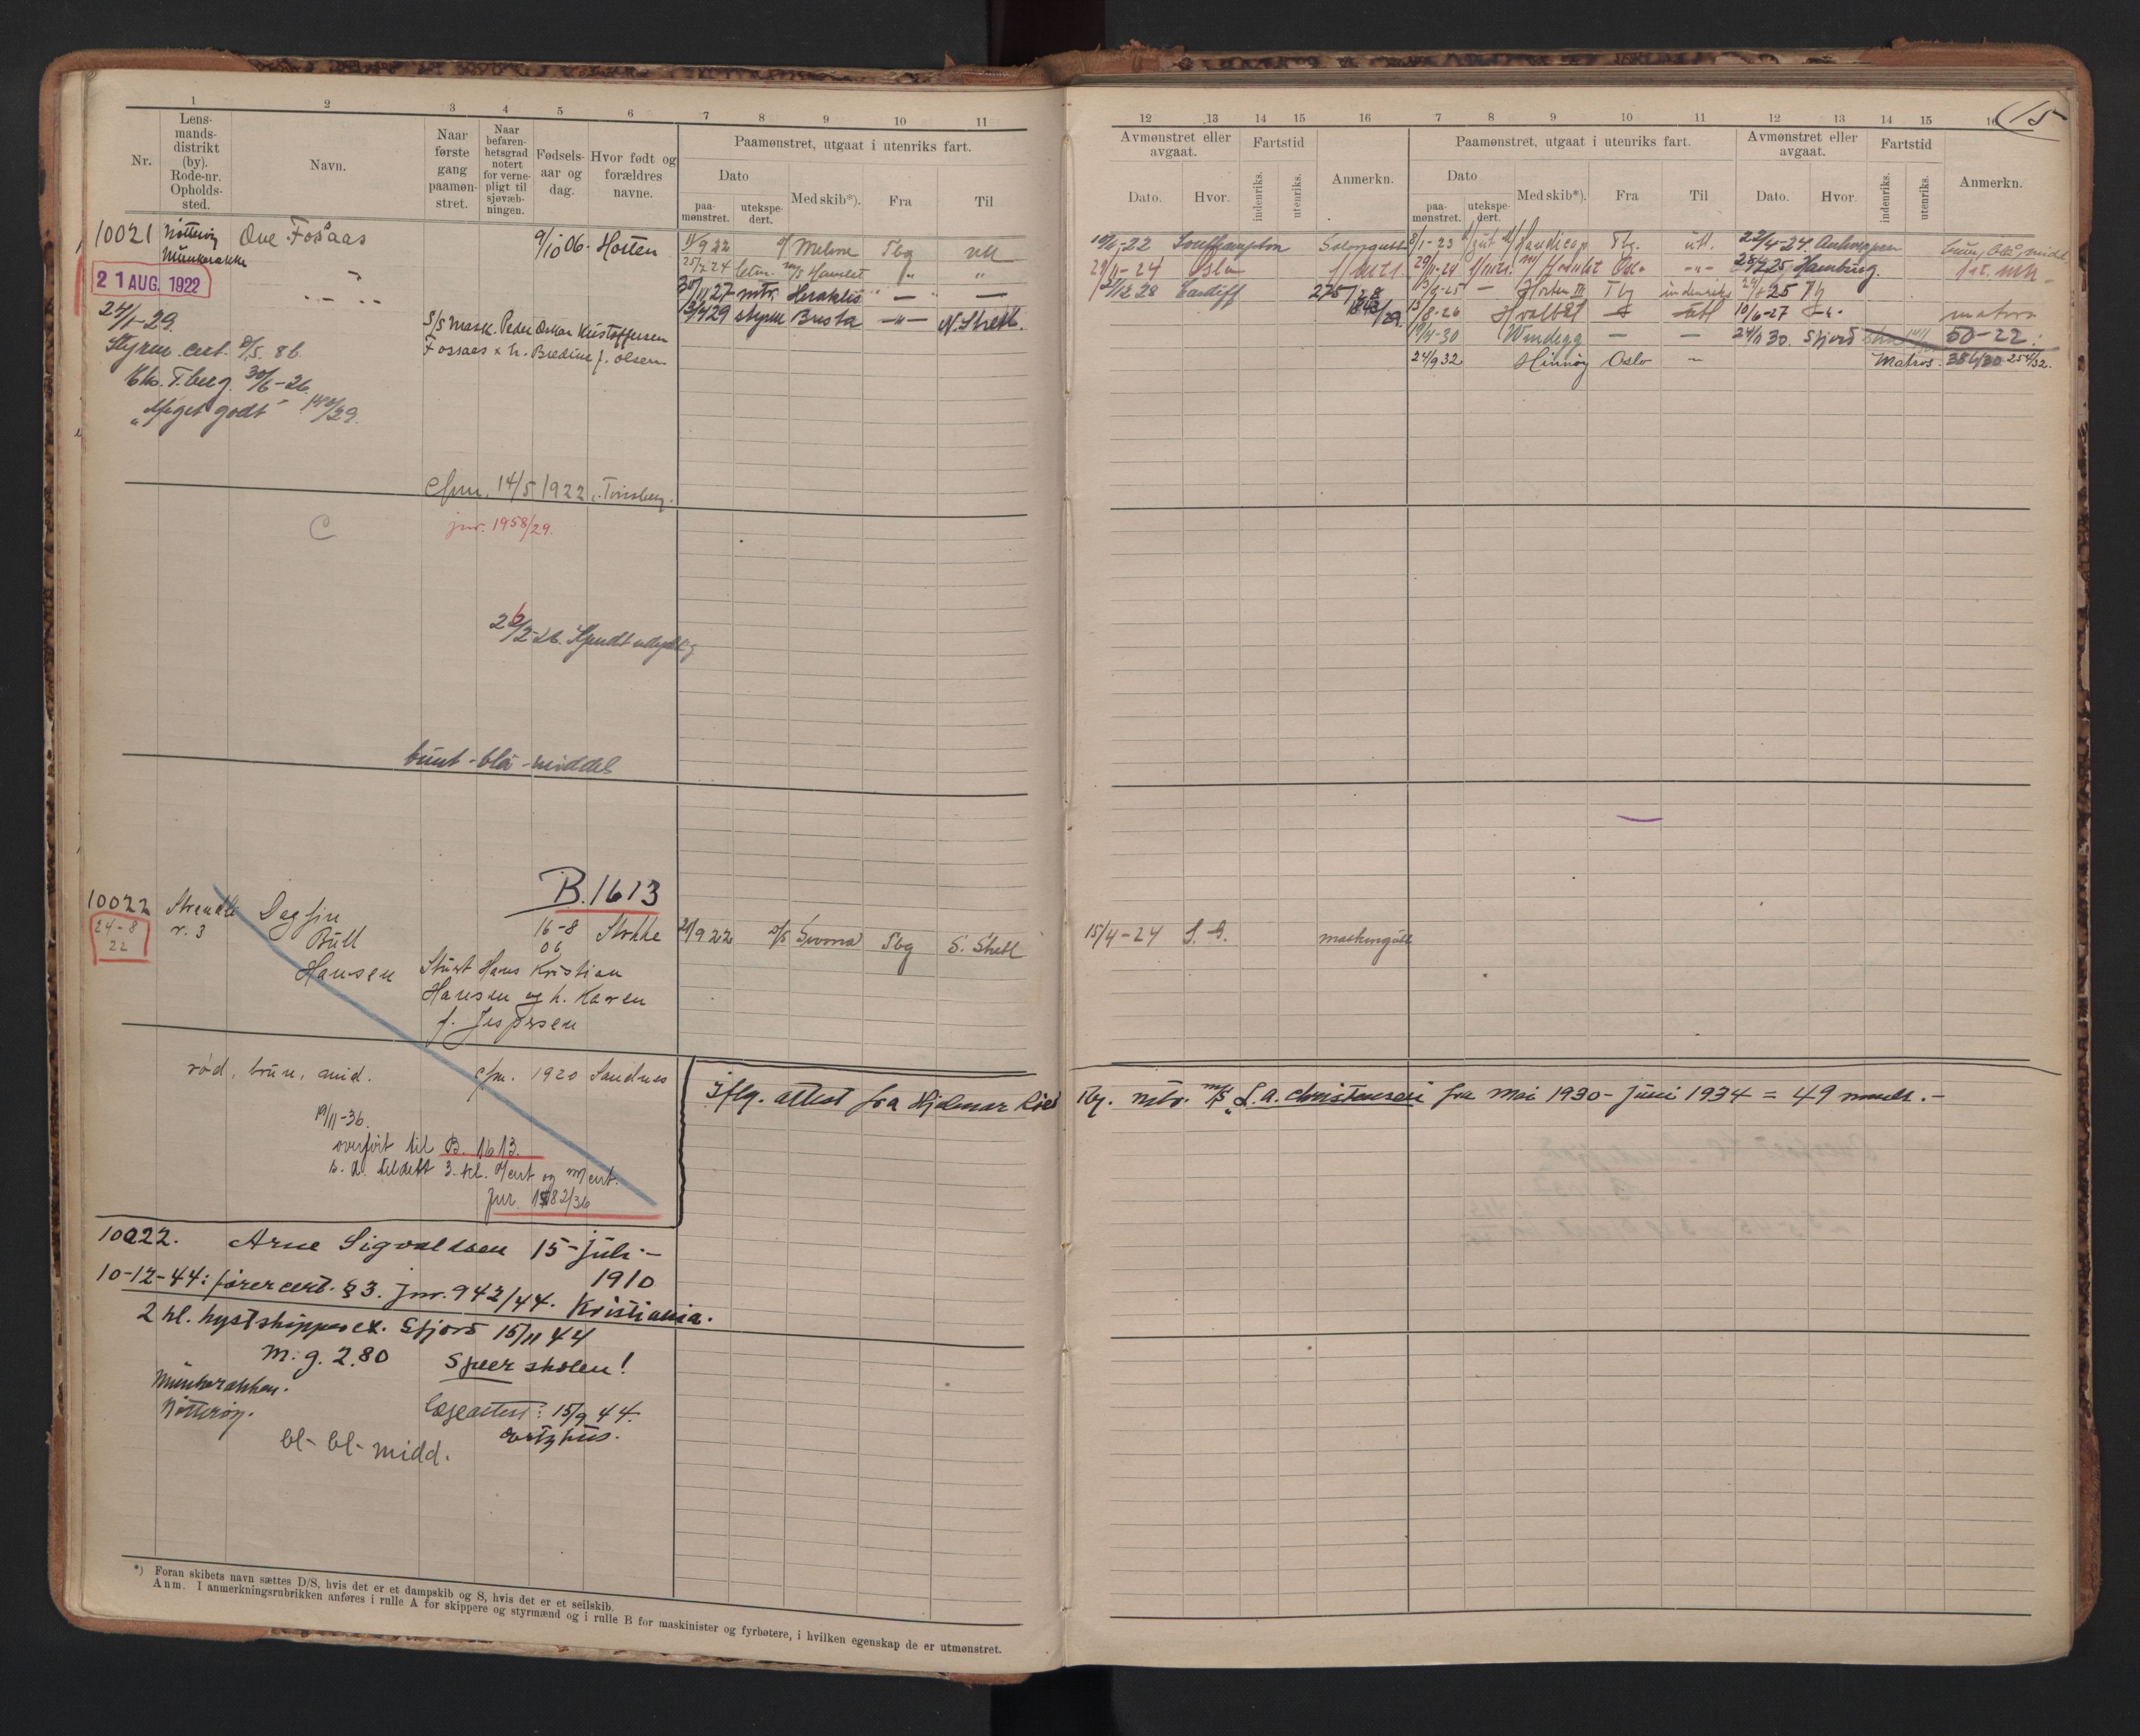 1 2 3 4 5 6 7 8 9 10 11
Nr.
Lens-
mands-
distrikt
(by).
Rode-nr.
Opholds-
sted.
Navn.
Naar
første
gang
paamøn-
stret.
Naar
befaren-
hetsgrad
notert
for verne-
pligt til
sjøvæb-
ningen.
Fødsels-
aar og
dag.
Hvor født og
forældres
navne.
Paamønstret, utgaat i utenriks fart.
Dato
paa-
mønstret.
utekspe-
dert.
Med skib*).
Fra
Til
10021 Nøtterøy Ove Fossaas 9/10 06. Horten 11/9 22 Melsom Tbg utl
Munkerakke
21 AUG. 1922
25/7 24 letm. M/S Hamlet " "
30/11 27 mtr. Herakles " — —
13/4 29 styrm Busta —"— N. Shetl.
24/1-29.
S/S mask. Peder Oskar Kristoffersen
Styrm. cert. §5. 86.
Fossaas & h. Bredine f. Olsen
Kho. T.berg. 30/6-26.
"Meget godt"
Cfm. 14/5 1922 i Tønsberg.
C
jnr. 1958/29.
brunt-blå-middel
B.1613
10022 Strandk Dagfin 16-8 Stokke 20/9 22 D/S Svona Tbg S. Shetl
24-8
22
r. 3
Bull
06
Hansen
Stuert Hans Kristian
Hansen og h. Karen
f. Jespersen
rød, brun, mid. Cfm. 1920 Sandnes
19/11-36.
overført til B. 1613.
s. d. tildelt 3. kl. Mcert.
jnr. 1582/36
10022. Arne Sigvaldsen 15-juli-
1910
10-12-44: førercert. §3. jnr. 942/44. Kristiania.
2 kl. kystskipperex. Sfjord 15/11 44
m. g. 2.80 Speer skolen!
Munkerakken.
Nøtterøy.
Legeattest: 15/9 44.
bl- bl- midd.
*) Foran skibets navn sættes D/S, hvis det er et dampskib og S, hvis det er et seilskib.
Anm. I anmerkningsrubrikken anføres i rulle A for skippere og styrmænd og i rulle B for maskinister og fyrbøtere, i hvilken egenskap de er utmønstret.
15
12 13 14 15 16 7 8 9 10 11 12 13 14 15 16
Avmønstret eller
avgaat.
Dato.
Hvor.
Fartstid
indenriks.
utenriks.
Anmerkn.
Paamønstret, utgaat i utenriks fart.
Dato
paa-
mønstret.
utekspe-
dert.
Med skib*).
Fra
Til
Avmønstret eller
avgaat.
Dato.
Hvor.
Fartstid
indenriks.
utenriks.
Anmerkn.
Southampton Salongut 8/1-23 Handicap Tbg. utl. 22/4-24. Antwerpen brun, blå, midd.
29/11-24 Oslo f/mtrs. 29/11-24 f/mtrs. M/S Hamlet Oslo -"- Hamburg.
21/12 28 Cardiff 275/28 13/6-25 — Horten III Tbg indenriks
13/8-26 Hvalbåt utl 10/6-27 matros
19/4-30 Vindegg — — 24/11 30. Sfjord 50-22.
24/9 32 Hinnøy Oslo — Matros. 254/32.
15/4-24 maskingutt
Iflg. attest fra Hjalmar Røed Tbg. mtr. M/S "L. A. Christensen" fra Mai 1930-Juni 1934 = 49 mndr. -